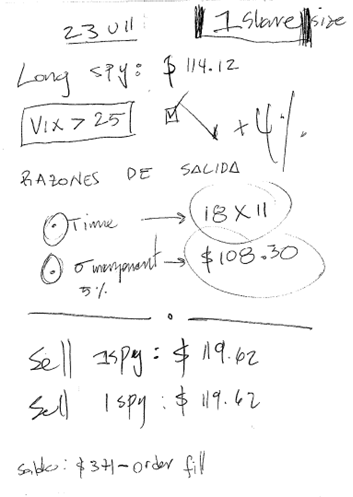 23 VII
1 Share size
Long SPY: $ 114.12
VIX > 25 + 4%
RAZONES DE SALIDA
Time → 18 XII
→ $108.30
5%
Sell 1 SPY: $ 119.62
Sell 1 SPY: $ 119.62
order fill